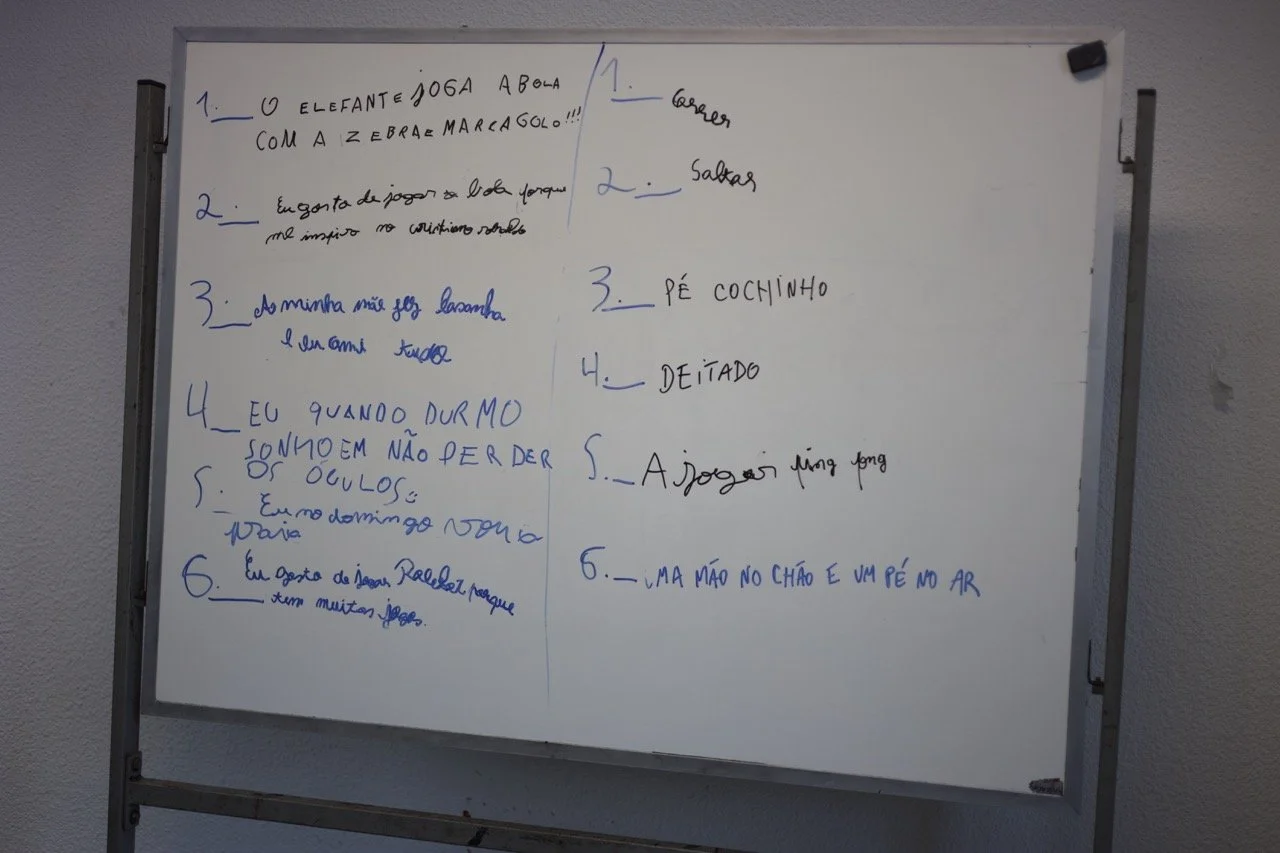 1. O ELEFANTE JOGA A BOLA
COM A ZEBRA E MARCA GOLO!!!
2. Eu gosto de jogar a bola porque
me inspiro no cristiano ronaldo
3. A minha mãe fez lasanha
e eu comi tudo
4 EU QUANDO DURMO
SONHO EM NÃO PERDER
OS ÓCULOS
5. Eu no domingo vou à
praia
6. Eu gosto de jogar Roblox porque
tem muitos jogos.
1. Correr
2. Saltar
3. PÉ COCHINHO
4. DEITADO
5. A jogar ping pong
6. UMA MÃO NO CHÃO E UM PÉ NO AR